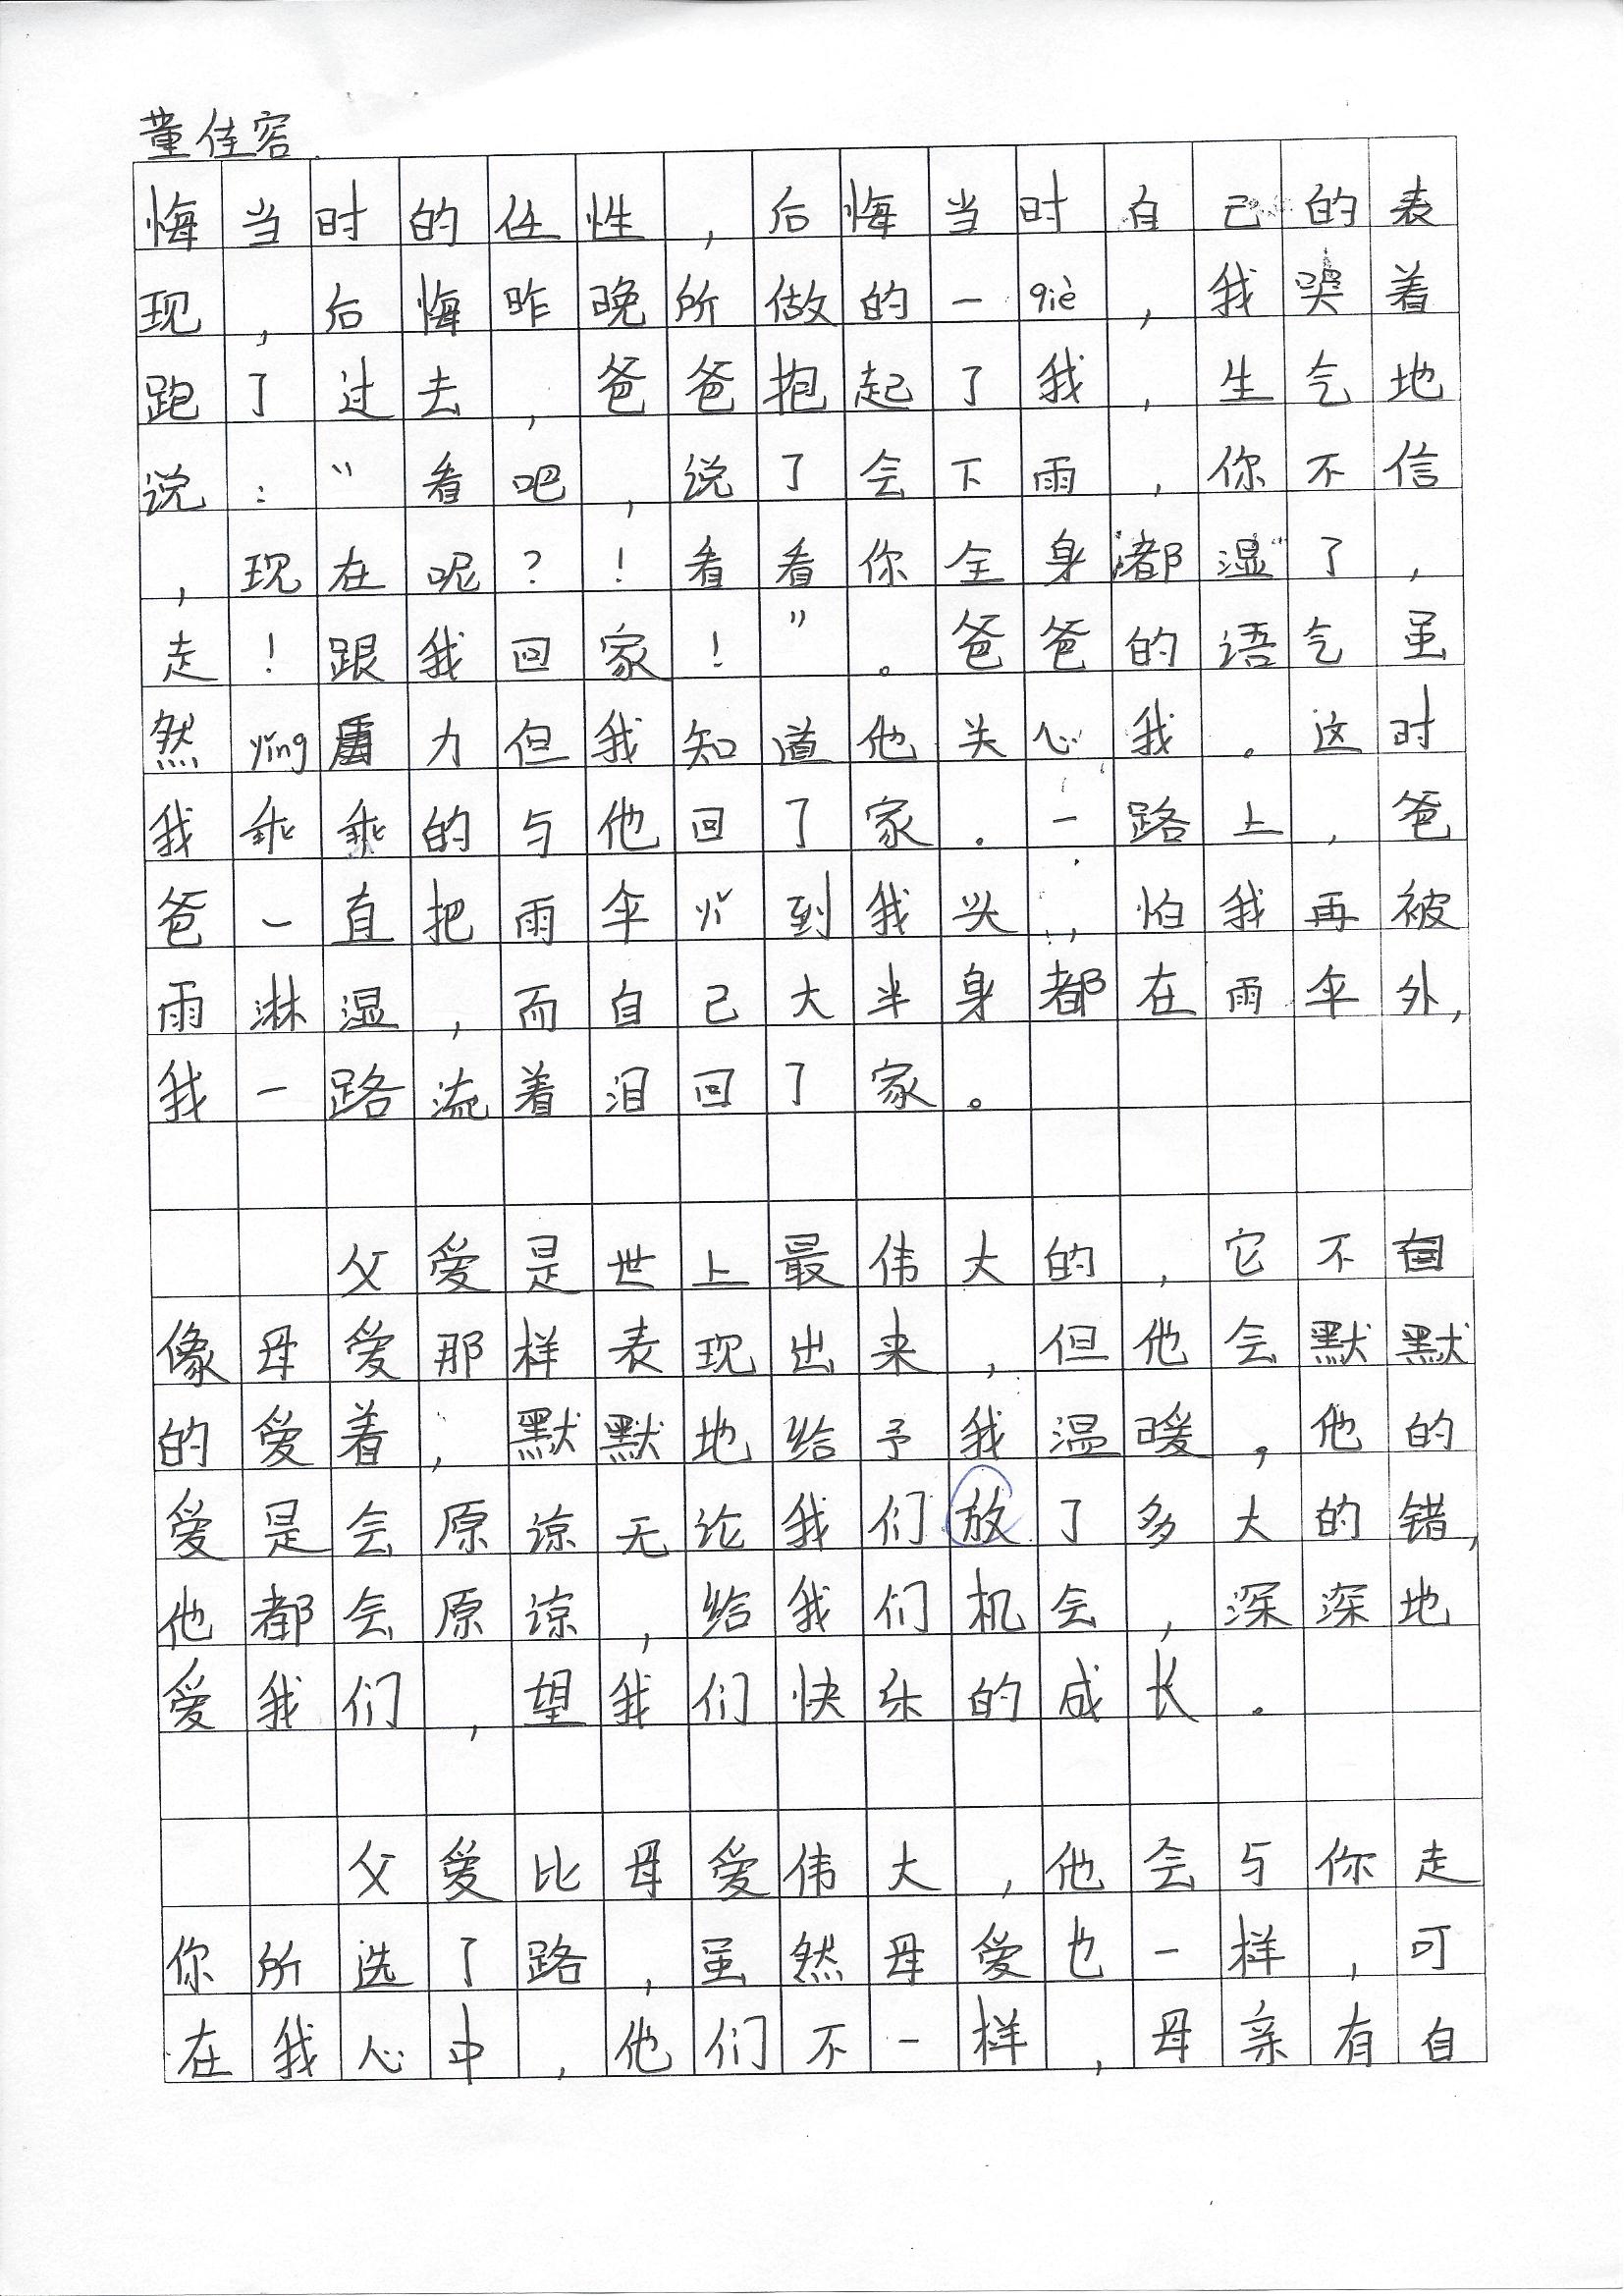 董佳容.
悔当时的任性，后悔当时自己的表
现，后悔昨晚所做的一qiè，我哭着
跑了过去，爸爸抱起了我，生气地
说：“看吧，说了会下雨，你不信
，现在呢？！看看你全身都湿了，
走！跟我回家！”。爸爸的语气虽
然yǐng力但我知道他关心我。这时
我乖乖的与他回了家．一路上，爸
爸一直把雨伞yǐ到我头，怕我再被
雨淋湿，而自己大半身都在雨伞外，
我一路流着泪回了家。
父爱是世上最伟大的，它不
像母爱那样表现出来，但他会默默
的爱着，默默地给予我温暖。他的
爱是会原谅无论我们放了多大的错，
他都会原谅，给我们机会，深深地
爱我们，望我们快乐的成长。
父爱比母爱伟大，他会与你走
你所选了路，虽然母爱也一样，可
在我心中，他们不一样，母亲有自